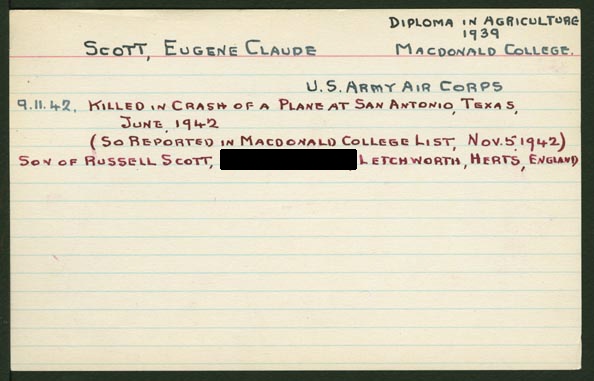 DIPLOMA IN AGRICULTURE
1939
SCOTT, EUGENE CLAUDE
MACDONALD COLLEGE.
U.S. ARMY AIR CORPS
9.11.42. KILLED IN CRASH OF A PLANE AT SAN ANTONIO, TEXAS,
JUNE, 1942
(SO REPORTED IN MACDONALD COLLEGE LIST, NOV. 5, 1942)
SON OF RUSSELL SCOTT, LETCHWORTH, HERTS, ENGLAND